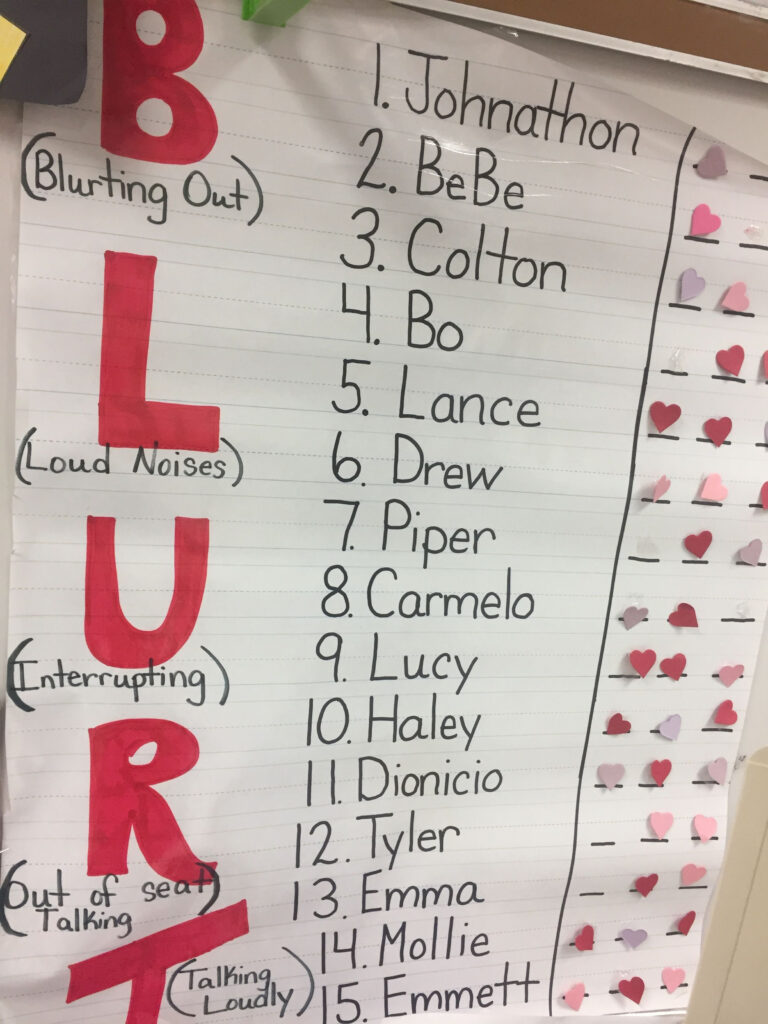 B
(Blurting Out)
L
(Loud Noises)
U
(Interrupting)
R
(Out of seat)
Talking
T
(Talking
Loudly)
1. Johnathon
2. BeBe
3. Colton
4. Bo
5. Lance
6. Drew
7. Piper
8. Carmelo
9. Lucy
10. Haley
11. Dionicio
12. Tyler
13. Emma
14. Mollie
15. Emmett